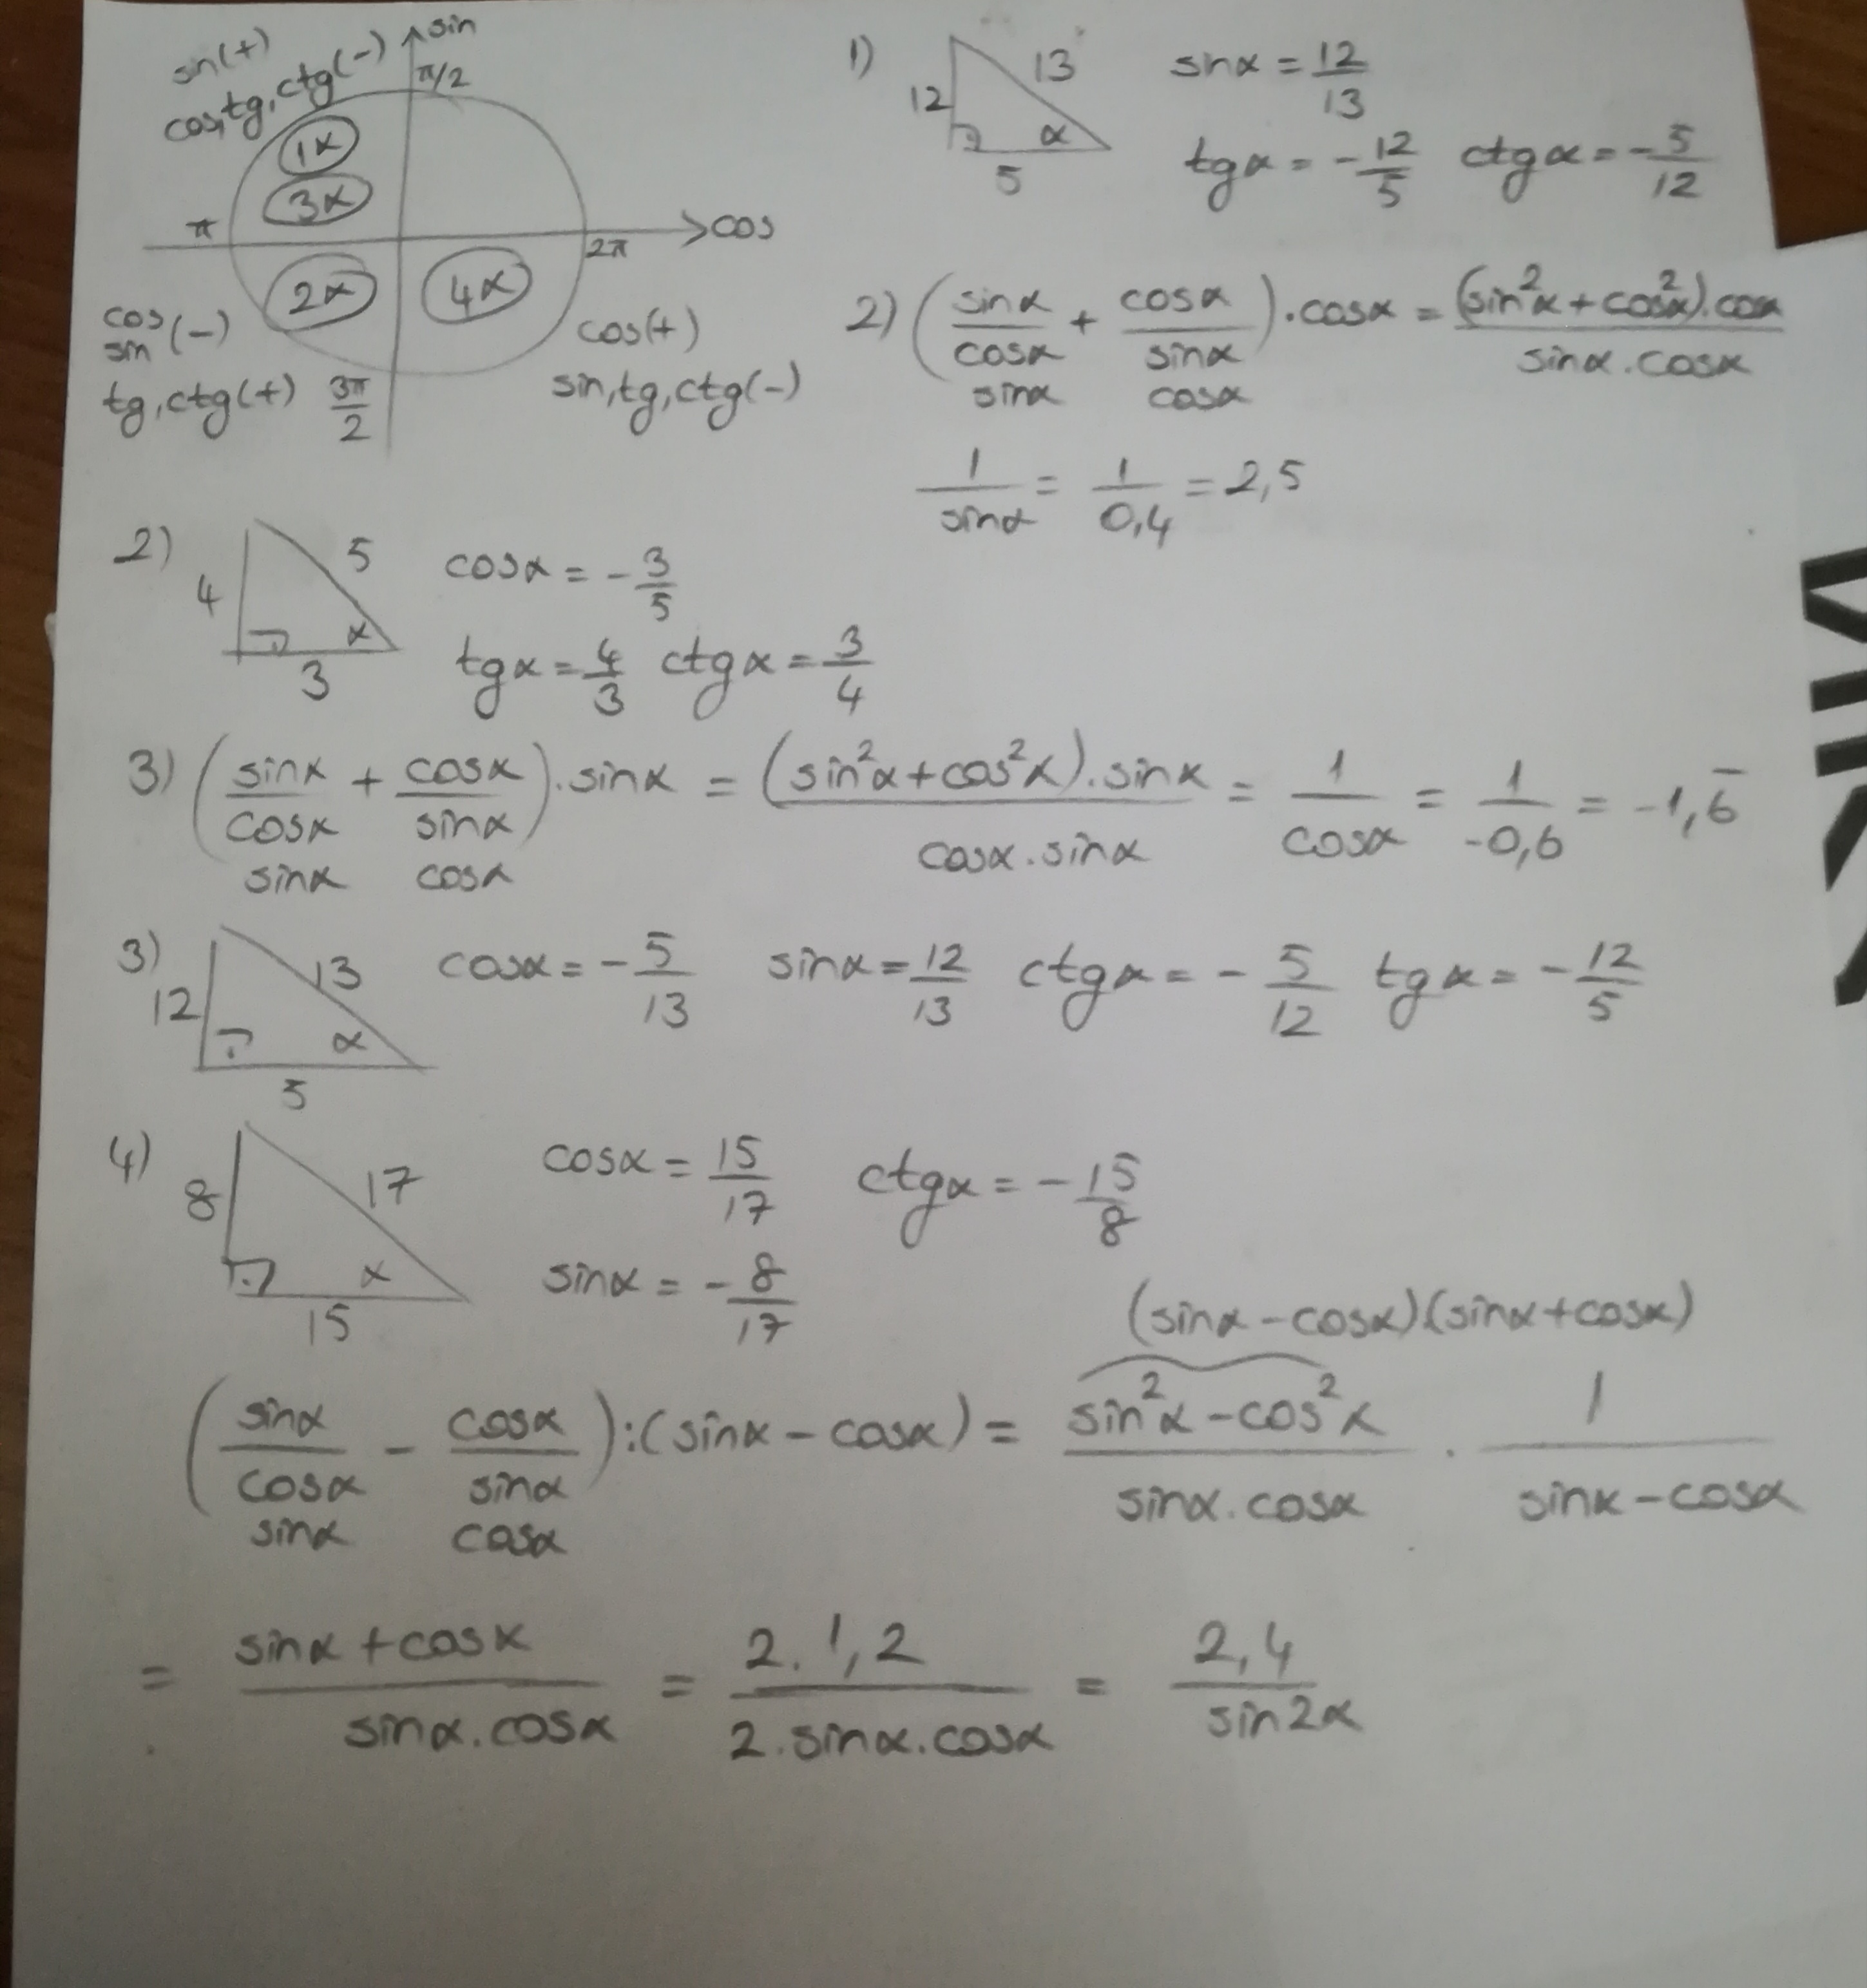 sin
sin(+)
cos,tg,ctg(-)
π/2
1α
3α
π
cos
2π
2α
4α
cos
sin (-)
tg,ctg(+)
3π/2
cos(+)
sin,tg,ctg(-)
1) 12 13 5 α
sinα = 12/13
tgα = -12/5 ctgα = -5/12
2) (sinα/cosα + cosα/sinα).cosα = (sin²α+cos²α).cosα / sinα.cosα
sinα cosα
1/sinα = 1/0,4 = 2,5
2) 4 5 3 α
cosα = -3/5
tgα = 4/3 ctgα = 3/4
3) (sinα/cosα + cosα/sinα).sinα = (sin²α+cos²α).sinα / cosα.sinα = 1/cosα = 1/-0,6 = -1,6̅
sinα cosα
3) 12 13 5 α
cosα = -5/13 sinα = 12/13 ctgα = -5/12 tgα = -12/5
4) 8 17 15 α
cosα = 15/17 ctgα = -15/8
sinα = -8/17
(sinα-cosα)(sinα+cosα)
(sinα/cosα - cosα/sinα):(sinα-cosα) = sin²α-cos²α / sinα.cosα . 1 / sinα-cosα
sinα cosα
= sinα+cosα / sinα.cosα = 2.1,2 / 2.sinα.cosα = 2,4 / sin2α